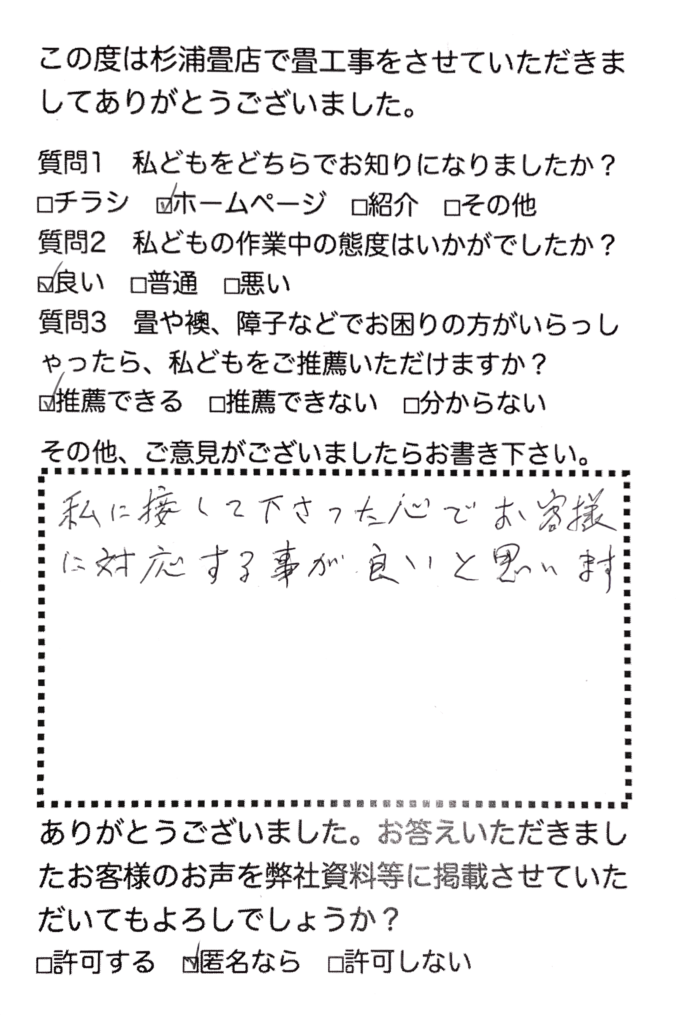 この度は杉浦畳店で畳工事をさせていただきま
してありがとうございました。
質問1　私どもをどちらでお知りになりましたか？
□チラシ　☑ホームページ　□紹介　□その他
質問2　私どもの作業中の態度はいかがでしたか？
☑良い　□普通　□悪い
質問3　畳や襖、障子などでお困りの方がいらっし
ゃったら、私どもをご推薦いただけますか？
☑推薦できる　□推薦できない　□分からない
その他、ご意見がございましたらお書き下さい。
私に接して下さった心でお客様
に対応する事が良いと思います
ありがとうございました。お答えいただきまし
たお客様のお声を弊社資料等に掲載させていた
だいてもよろしでしょうか？
□許可する　☑匿名なら　□許可しない